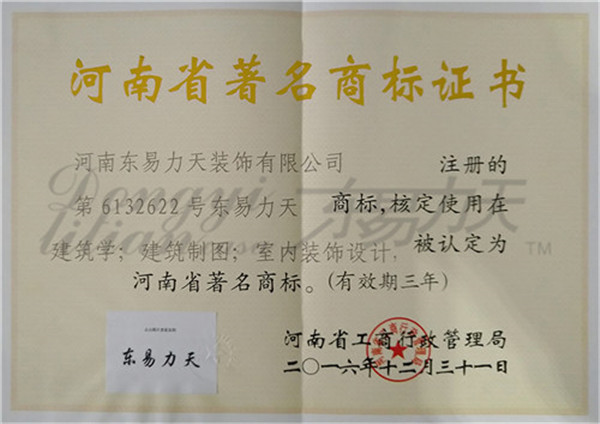 河南省著名商标证书
河南东易力天装饰有限公司 注册的
第 6132622 号东易力天 商标,核定使用在
建筑学;建筑制图;室内装饰设计, 被认定为
河南省著名商标。(有效期三年)
东易力天
河南省工商行政管理局
二〇一六年十二月三十一日
Dongyi
litian
东易力天 TM